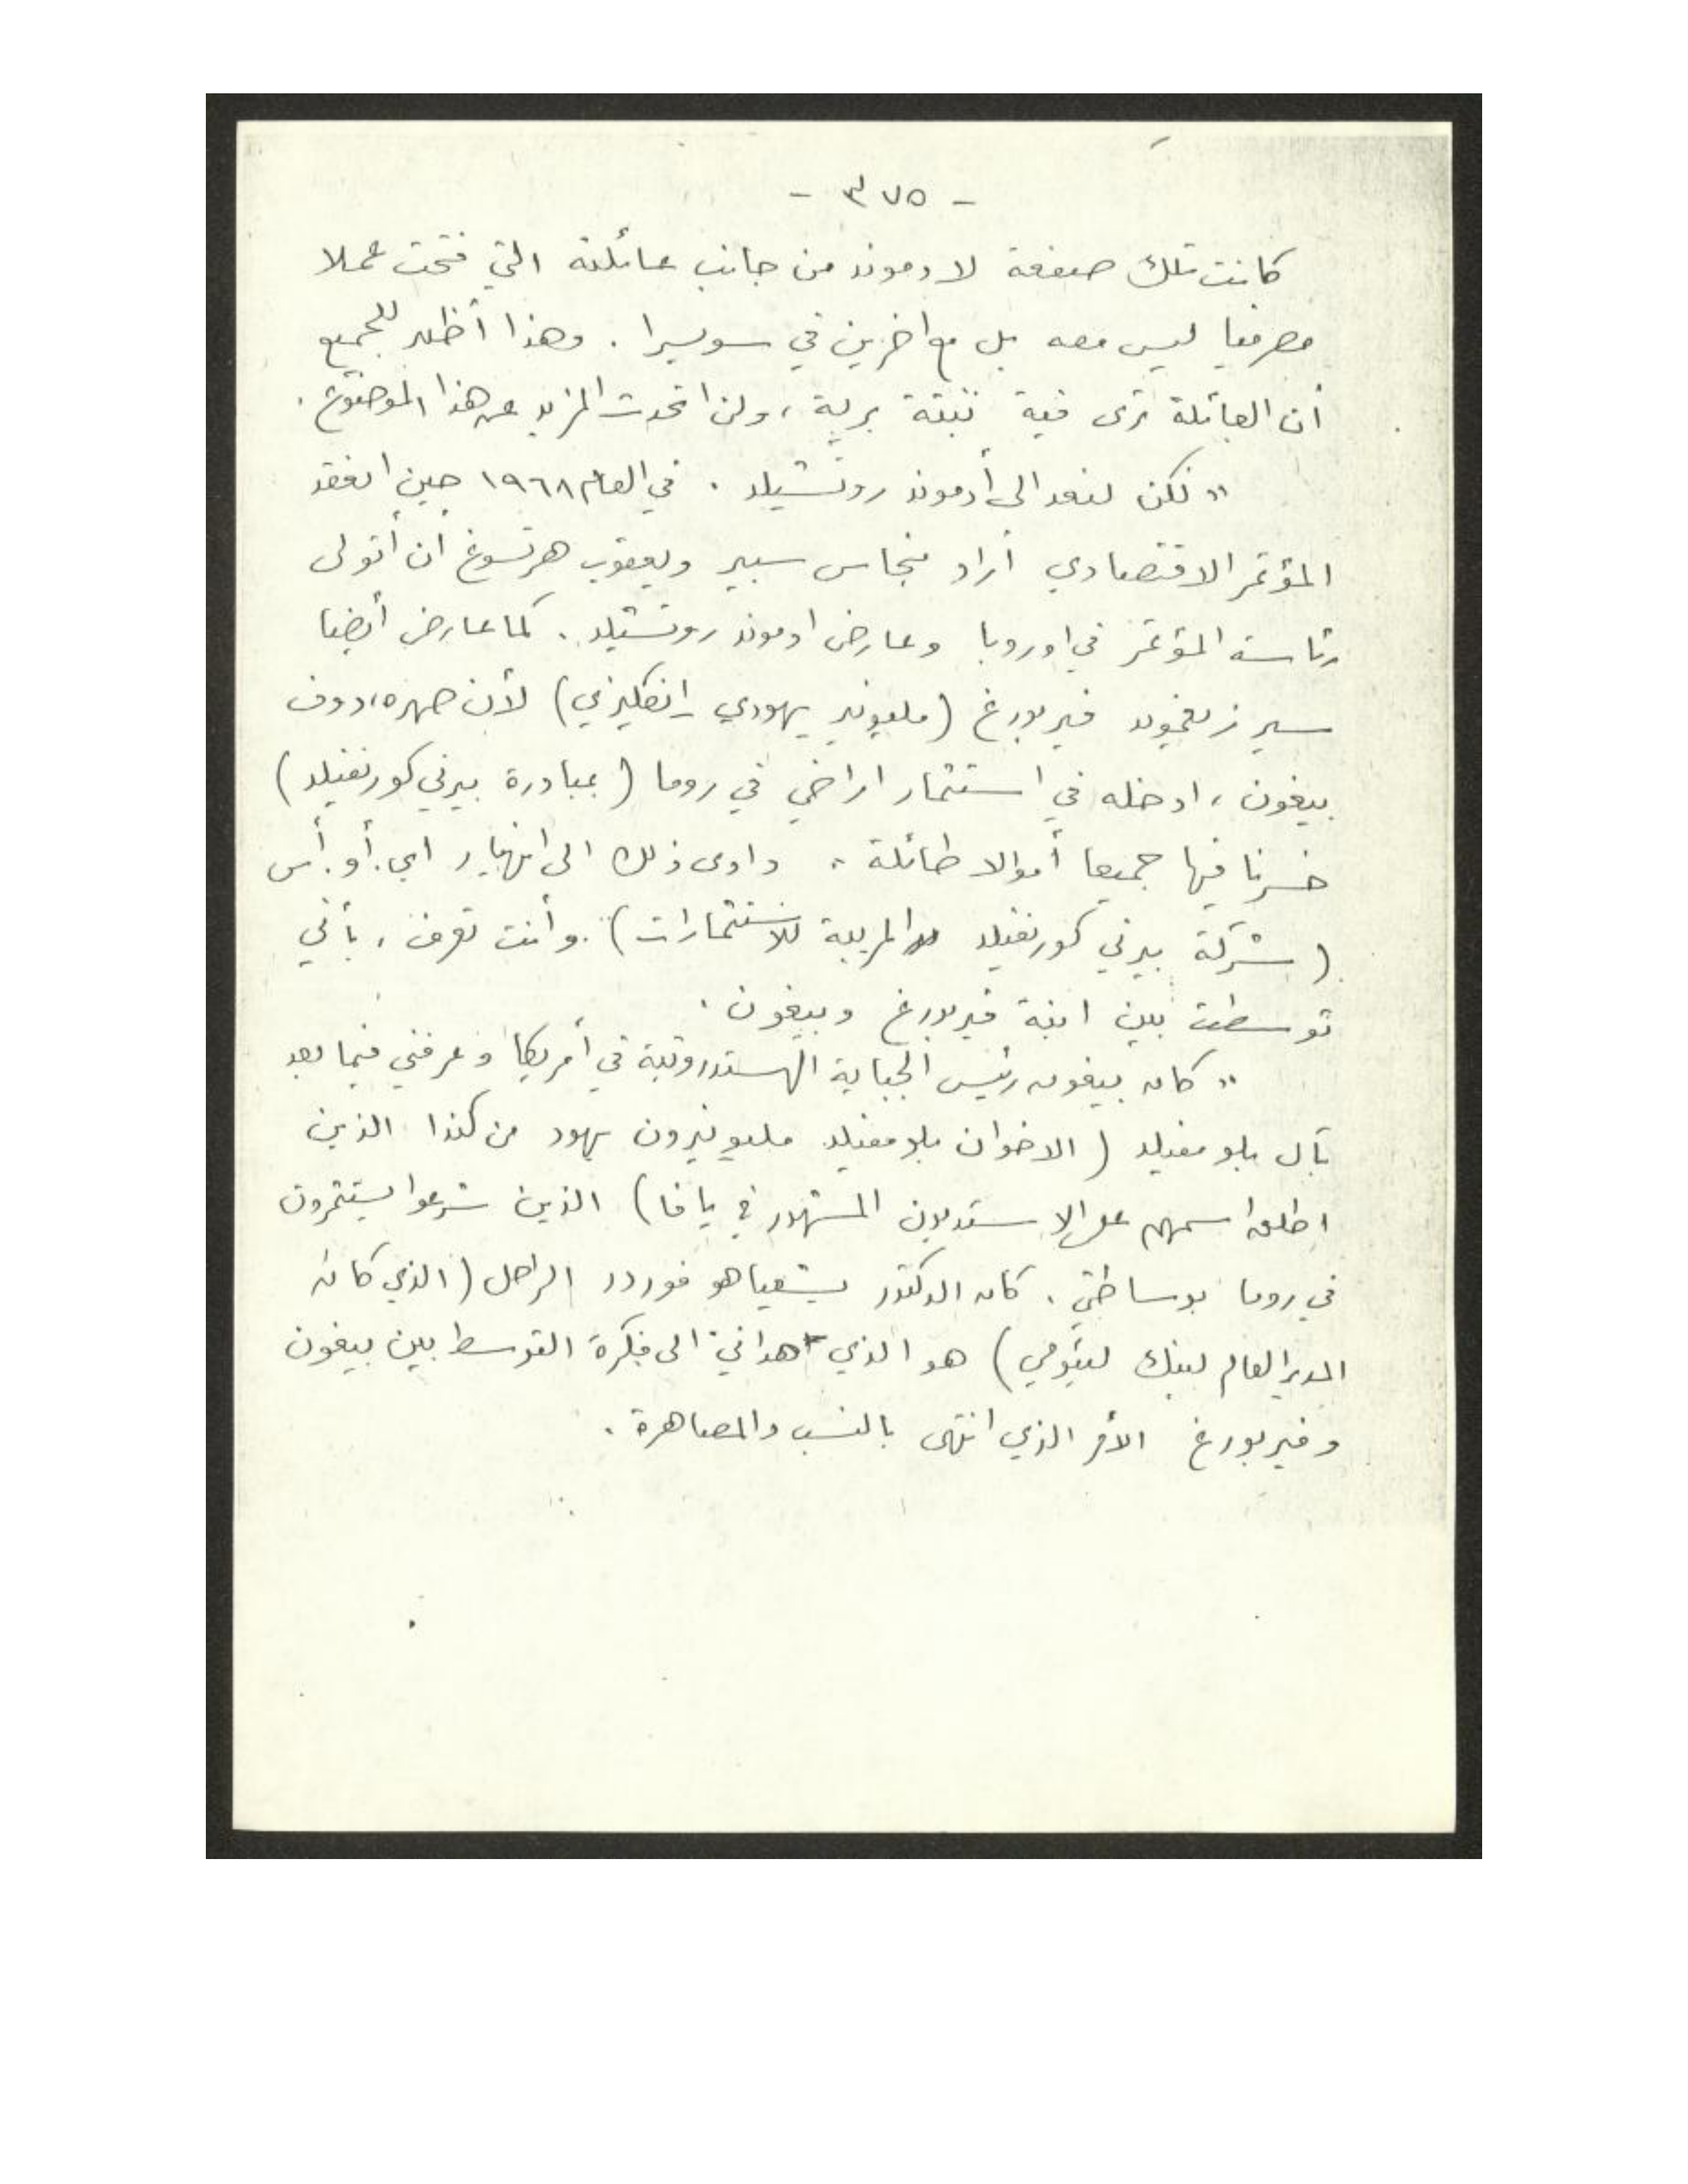 - ٣٧٥ -
كانت تلك صفعة لادموند من جانب عائلته التي فتحت عملا
مصرفيا ليس معه بل مع اخرين في سويسرا . وهذا أظهر للجميع
أن العائلة ترى فيه نبتة برية ، ولن اتحدث المزيد عن هذا الموضوع .
" لكن لنعد الى أدموند روتشيلد . في العام ١٩٦٨ حين انعقد
المؤتمر الاقتصادي أراد بنحاس سبير ويعقوب هرتسوغ أن أتولى
رئاسة المؤتمر في اوروبا وعارض ادموند روتشيلد . كما عارض أيضا
سير زيغموند فيربورغ (مليونير يهودي إنكليزي) لأن صهره، دوف
بيغون ، ادخله في استثمار اراضي في روما ( بمبادرة بيرني كورنفيلد )
خسرنا فيها جميعا أموالا طائلة ، وادى ذلك الى انهيار اي . أو . أس
( شركة بيرني كورنفيلد للاستثمارات ) . وأنت تعرف ، بأني
توسطت بين ابنة فيربورغ وبيغون .
" كان بيغون رئيس الجباية الهستدروتية في أمريكا وعرفني فيما بعد
بآل بلومفيلد ( الاخوان بلومفيلد مليونيرون يهود من كندا الذين
اطلق اسمهم على الاستديون المشهور في يافا ) الذين شرعوا يستثمرون
في روما بوساطتي . كان الدكتور يشعياهو فوردر الراحل ( الذي كان
المدير العام لبنك ليئومي ) هو الذي هداني الى فكرة التوسط بين بيغون
وفيربورغ الأمر الذي انتهى بالنسب والمصاهرة .